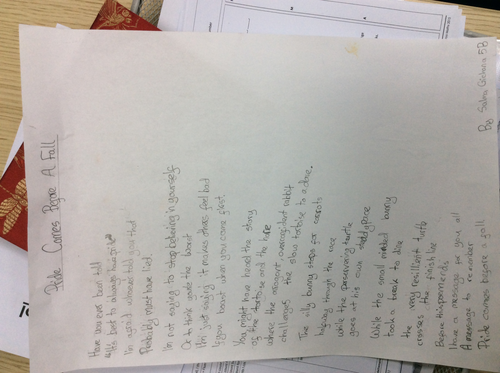 Pride Comes Before A Fall
Have you not been told
it's best to always have pride
I'm afraid whoever told you that
Probably might have lied.
I'm not saying to stop believing in yourself
Or to think under the board
I'm just saying it makes others feel bad
If you boast when you came first
You might have heard the story
of the tortoise and the hare
where the arrogant overconfident rabbit
challenges the slow tortoise to a dare.
The silly bunny stops for carrots
halfway through the race
while the persevering turtle
goes at his own steady pace
While the small minded bunny
took a break to dine
the very resillient turtle
crosses the finish line
I have a message for you all
A message to remember
Pride comes before a fall
By 5B